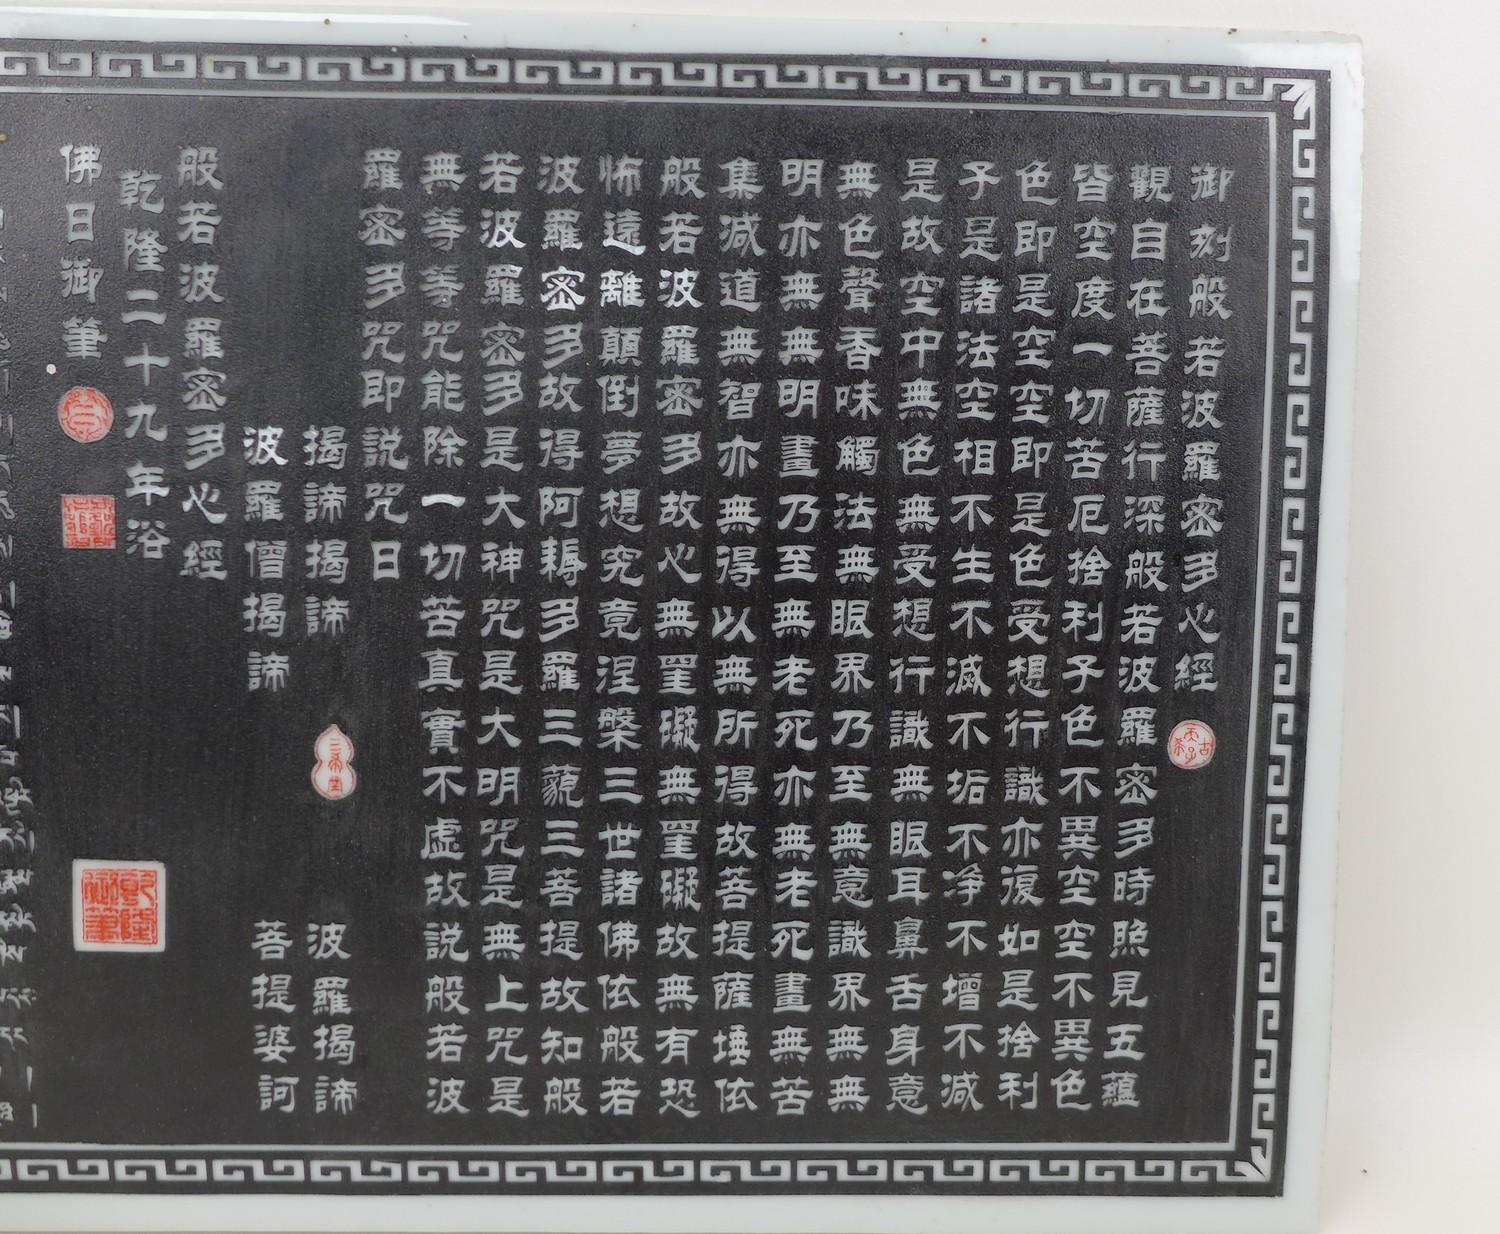 御刻般若波羅密多心經
觀自在菩薩行深般若波羅密多時照見五蘊
皆空度一切苦厄捨利子色不異空空不異色
色即是空空即是色受想行識亦復如是捨利
子是諸法空相不生不滅不垢不净不增不减
是故空中無色無受想行識無眼耳鼻舌身意
無色聲香味觸法無眼界乃至無意識界無無
明亦無無明畫乃至無老死亦無老死畫無苦
集减道無智亦無得以無所得故菩提薩埵依
般若波羅密多故心無罣礙無罣礙故無有恐
怖遠離顛倒夢想究竟涅槃三世諸佛依般若
波羅密多故得阿耨多羅三藐三菩提故知般
若波羅密多是大神咒是大明咒是無上咒是
無等等咒能除一切苦真實不虛故説般若波
羅密多咒即説咒曰
揭諦揭諦 波羅揭諦
波羅僧揭諦 菩提婆訶
般若波羅密多心經
乾隆二十九年浴
佛日御筆
乾隆御筆